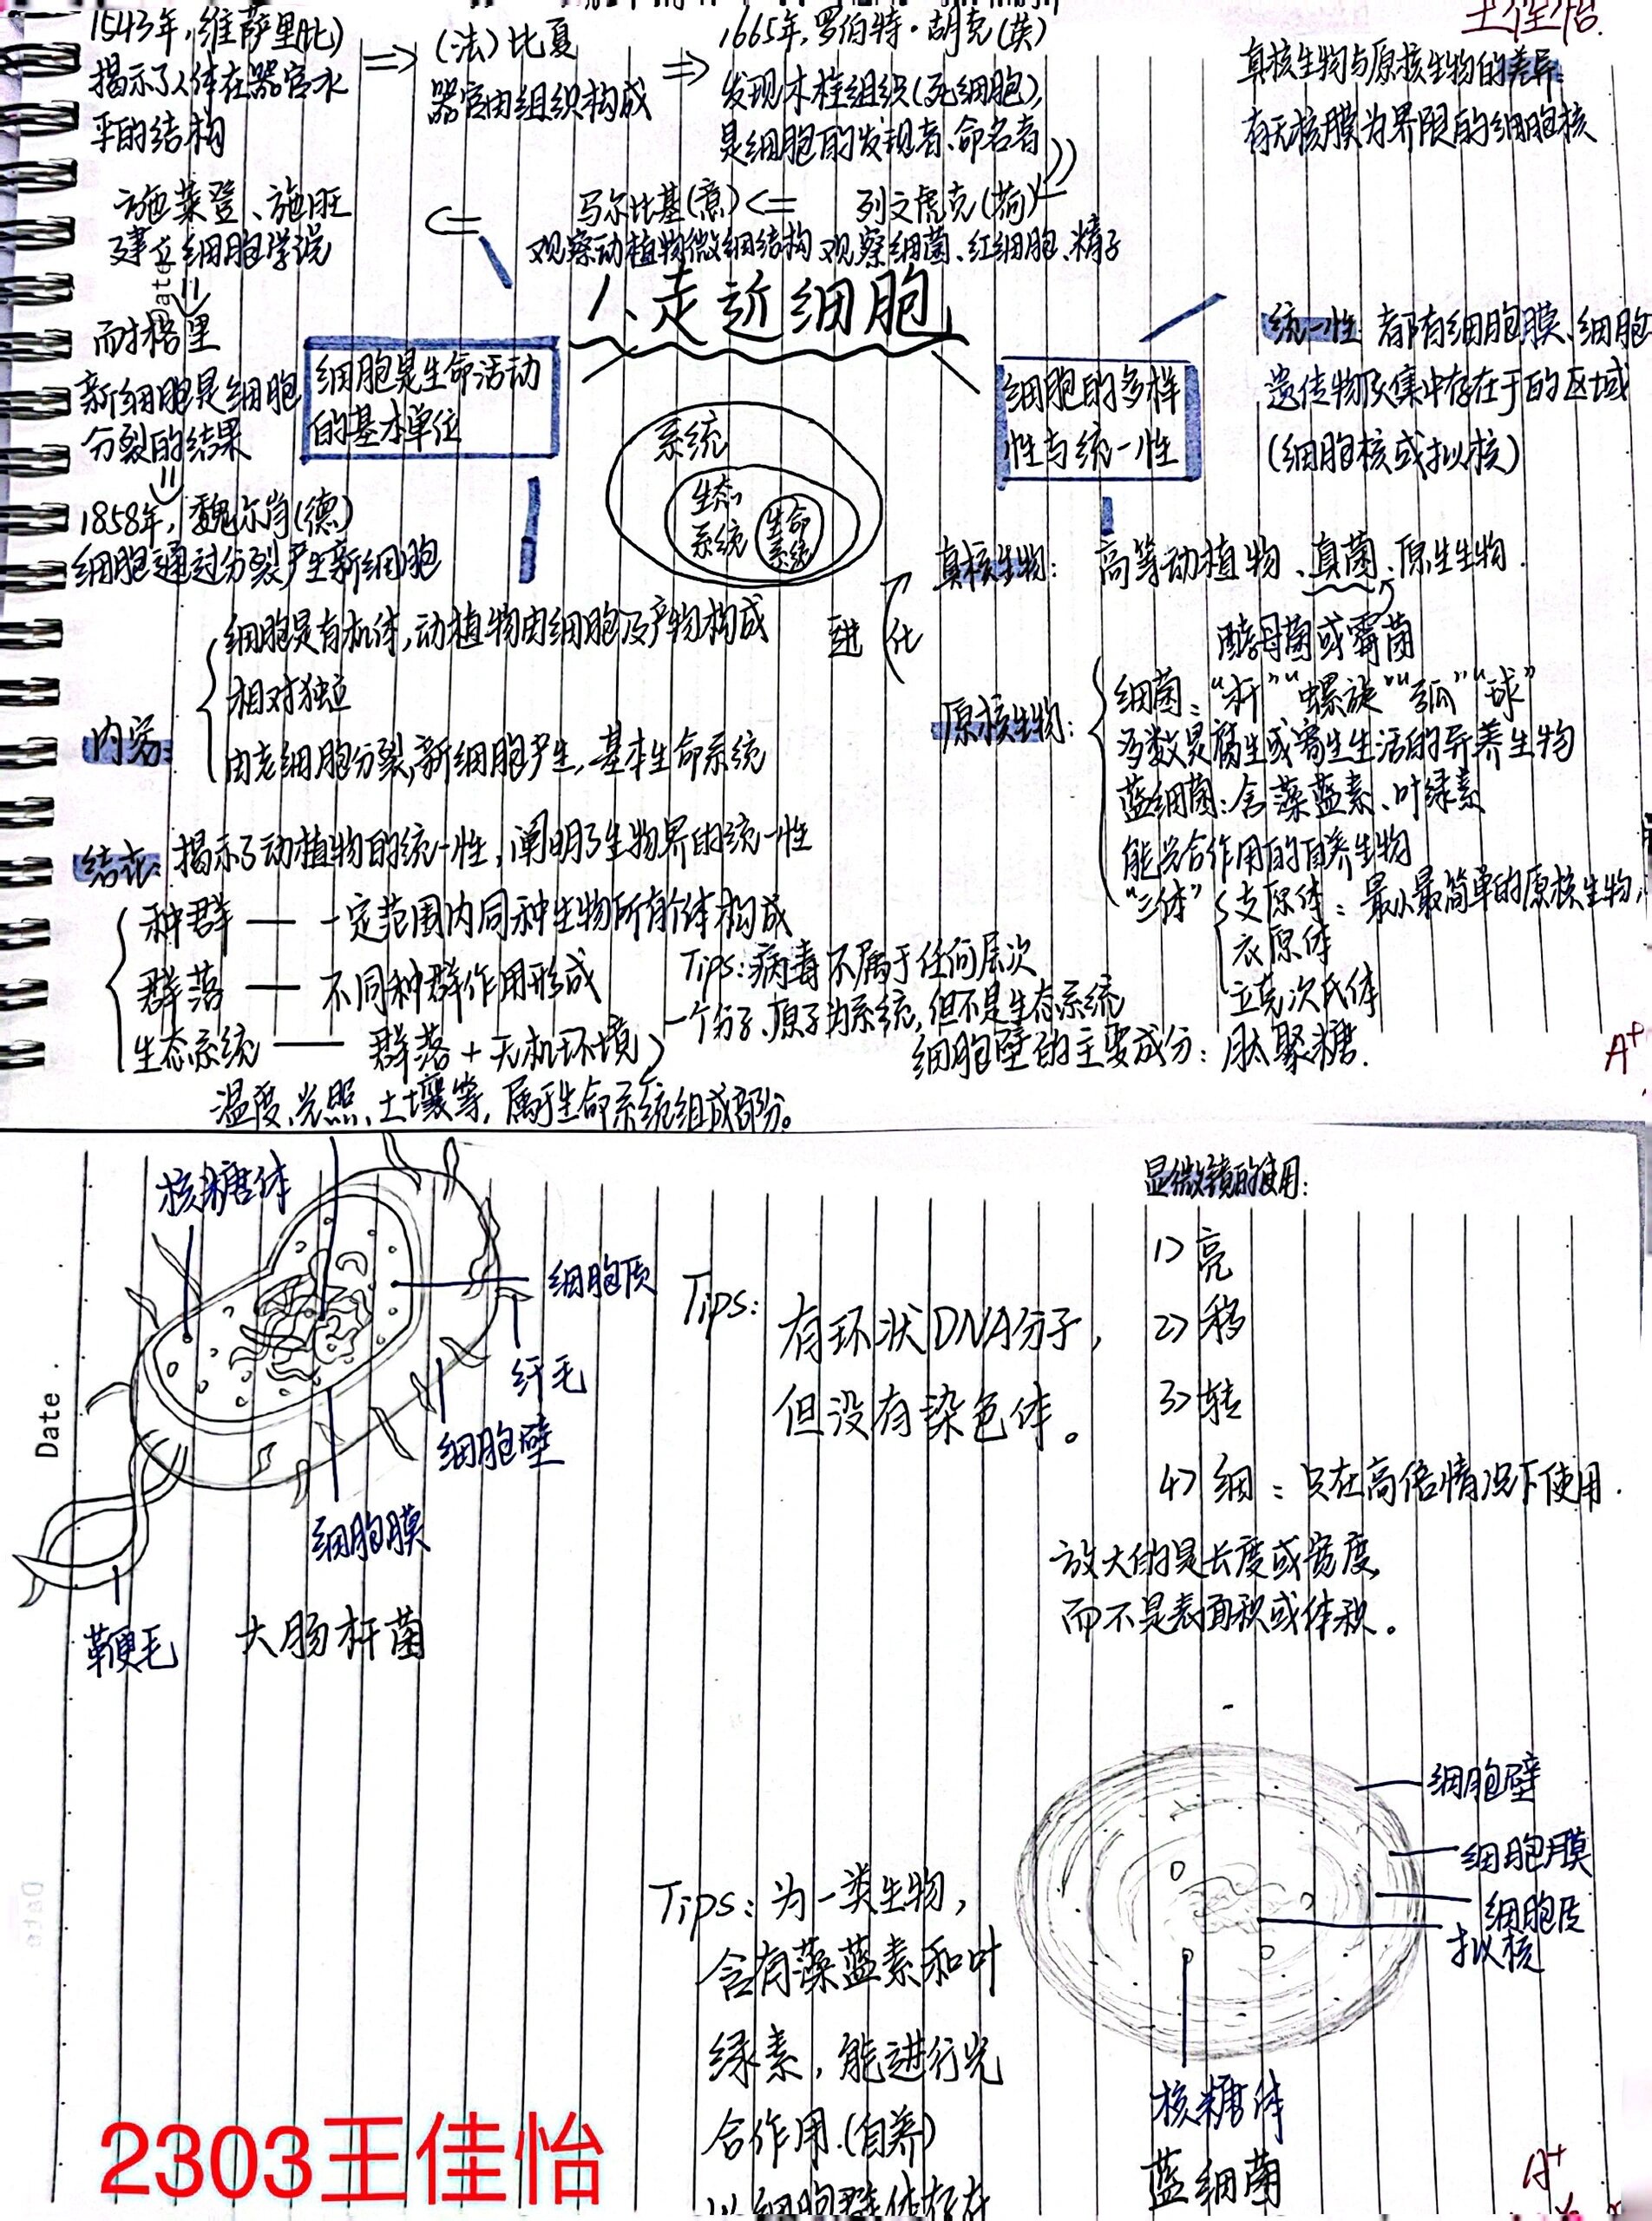 王佳怡
1543年,维萨里(比)
揭示了人体在器官水
平的结构
(法)比夏
器官由组织构成
1665年,罗伯特·胡克(英)
发现木栓组织(死细胞),
是细胞的发现者、命名者
列文虎克(荷)
观察细菌、红细胞、精子
马尔比基(意)
观察动植物微细结构
施莱登、施旺
建立细胞学说
Date
耐格里
新细胞是细胞
分裂的结果
1858年,魏尔肖(德)
细胞通过分裂产生新细胞
1、走近细胞
细胞是生命活动
的基本单位
系统
生态
系统
生命
系统
细胞的多样
性与统一性
真核生物与原核生物的差异:
有无核膜为界限的细胞核
统一性:都有细胞膜、细胞
遗传物质集中存在于的区域
(细胞核或拟核)
内容:
细胞是有机体,动植物由细胞及产物构成
相对独立
由老细胞分裂,新细胞产生,基本生命系统
结论:揭示了动植物的统一性,阐明了生物界的统一性
种群——一定范围内同种生物所有个体构成
群落——不同种群作用形成
生态系统——群落+无机环境
温度、光照、土壤等,属于生命系统组成部分。
Tips:病毒不属于任何层次
一个分子、原子为系统,但不是生态系统
进化
真核生物:高等动植物、真菌、原生生物.
酵母菌或霉菌
原核生物:
细菌:“杆”“螺旋”“弧”“球”
多数是腐生或寄生生活的异养生物
蓝细菌:含藻蓝素、叶绿素
能光合作用的自养生物
“三体”
支原体:最小最简单的原核生物,
衣原体
立克次氏体
细胞壁的主要成分:肽聚糖.
A+
核糖体
细胞质
纤毛
细胞壁
细胞膜
鞭毛
大肠杆菌
Date.
Tips:
有环状DNA分子,
但没有染色体。
显微镜的使用:
1>亮
2>移
3>转
4>细:只在高倍情况下使用.
放大的是长度或宽度,
而不是表面积或体积。
细胞壁
细胞膜
细胞质
拟核
核糖体
蓝细菌
Tips:为一类生物,
含有藻蓝素和叶
绿素,能进行光
合作用.(自养)
以细胞群体存在
A+
2303王佳怡